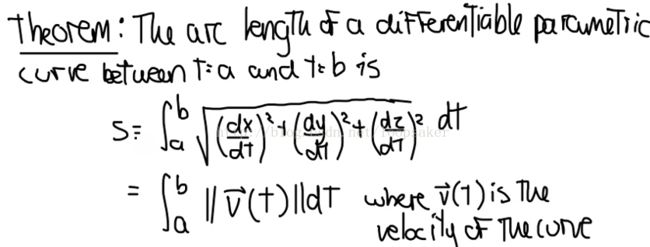 Theorem: The arc length of a differentiable parametric
curve between t=a and t=b is
S = ∫_a^b √((dx/dt)² + (dy/dt)² + (dz/dt)²) dt
= ∫_a^b ||v⃗(t)||dt where v⃗(t) is the
velocity of the curve